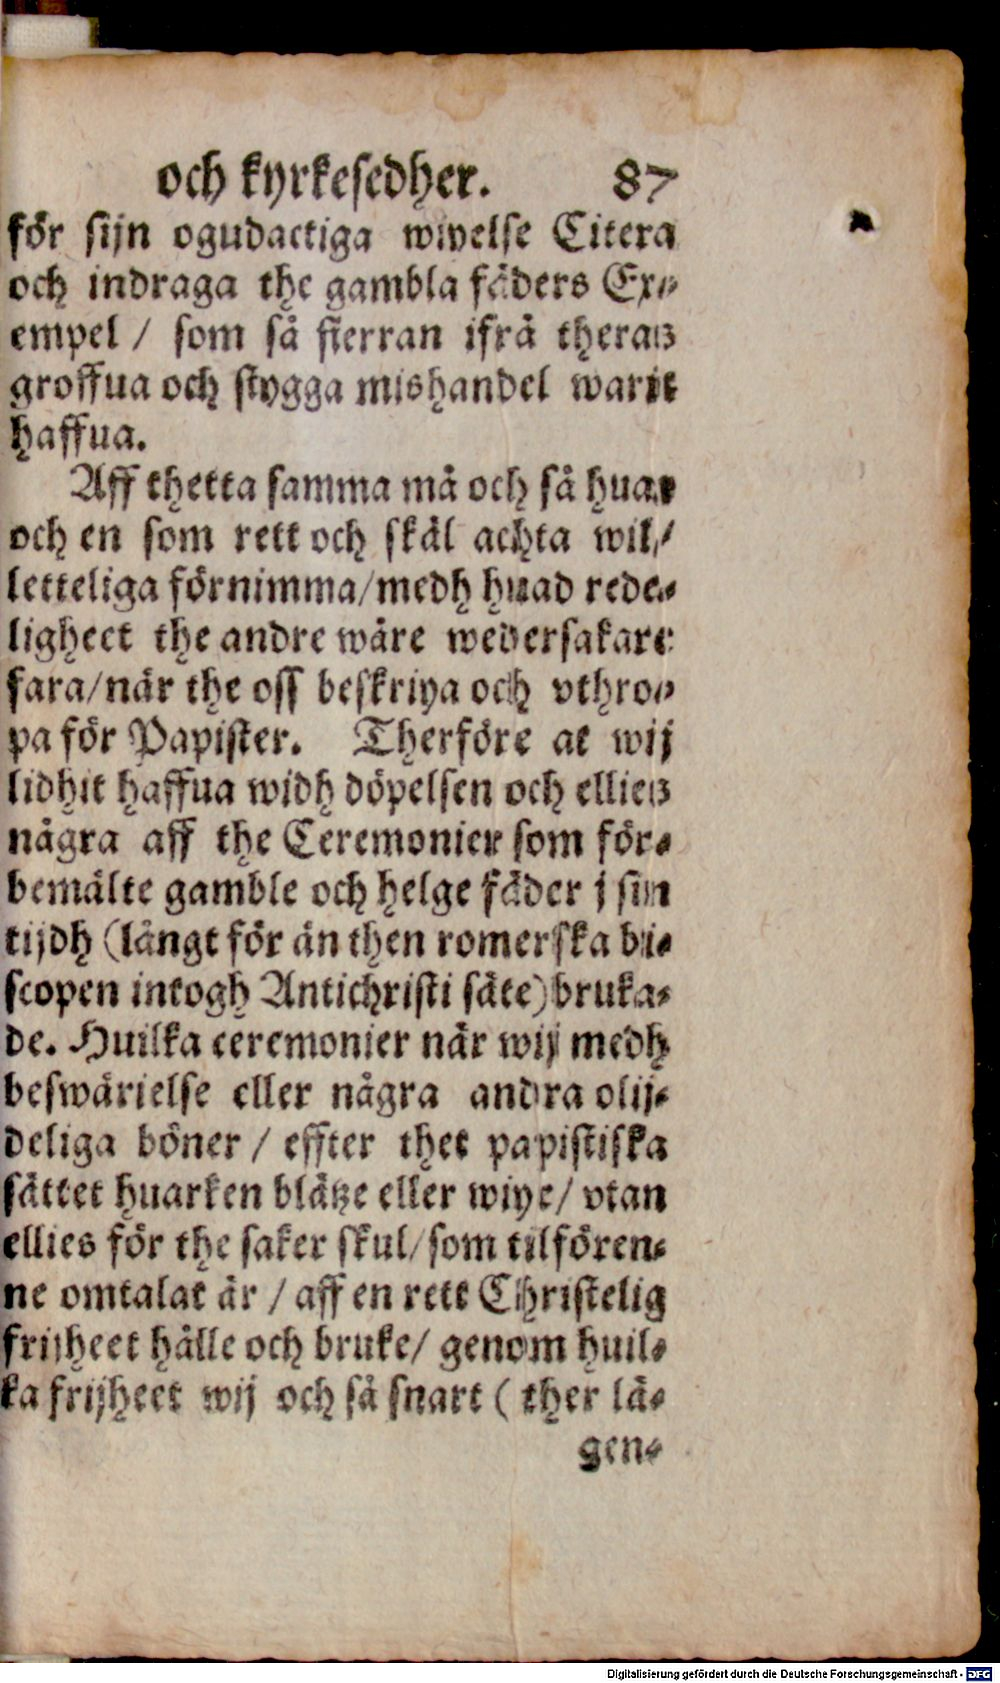 och kyrkesedher. 87
för sijn ogudactiga wiyelse Citera
och indraga the gambla fäders Ex-
empel / som så fierran ifrå theras
groffua och stygga mishandel warit
haffua.
Aff thetta samma må och så huar
och en som rett och skäl achta wil /
letteliga förnimma / medh huad rede-
ligheet the andre wåre wedersakare
fara / när the oss beskriya och vthro-
pa för Papister. Therföre at wij
lidhit haffua widh döpelsen och ellies
några aff the Ceremonier som för-
bemälte gamble och helge fäder j sijn
tijdh (långt för än then romerska bi-
scopen intogh Antichristi säte) bruka-
de. Huilka ceremonier när wij medh
beswärielse eller några andra olij-
deliga böner / effter thet papistiska
sättet huarken blätze eller wiye / vtan
ellies för the saker skul / som tilfören-
ne omtalat är / aff en rett Christelig
frijheet hålle och bruke / genom huil-
ka frijheet wij och så snart ( ther lä-
gen-
Digitalisierung gefördert durch die Deutsche Forschungsgemeinschaft - DFG